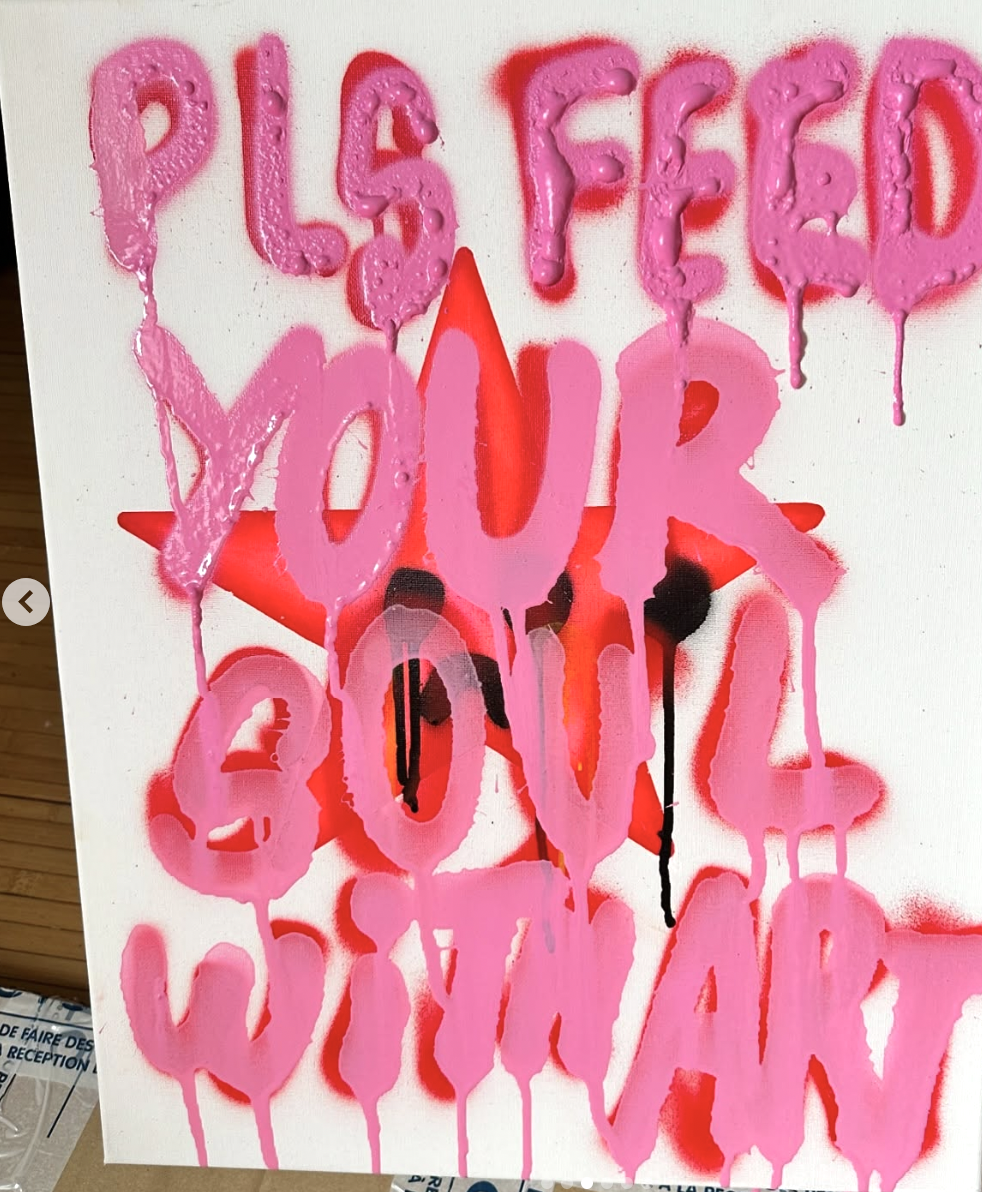 PLS FEED
YOUR
SOUL
WiTH ART
DE FAIRE DES
RECEPTION